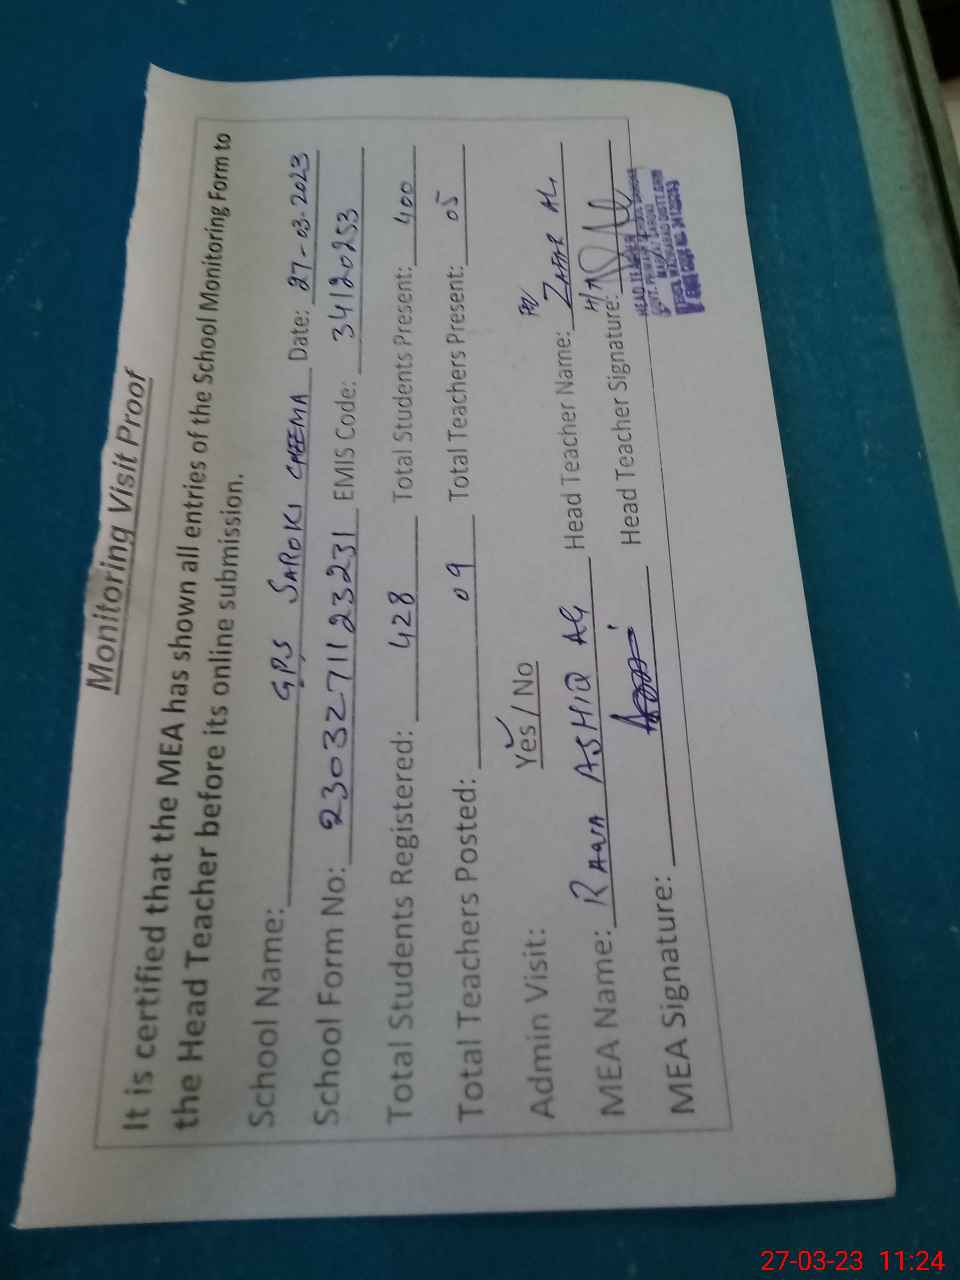 Monitoring Visit Proof
It is certified that the MEA has shown all entries of the School Monitoring Form to
the Head Teacher before its online submission.
School Name: GPS SAROKI CHEEMA Date: 27-03-2023
School Form No: 23032711123231 EMIS Code: 34120253
Total Students Registered: 428 Total Students Present: 400
Total Teachers Posted: 09 Total Teachers Present: 05
Admin Visit: Yes / No
MEA Name: RANA ASHIQ ALI Head Teacher Name: ZAFAR ALI
MEA Signature: Head Teacher Signature:
HEAD TEACHER
27-03-23 11:24